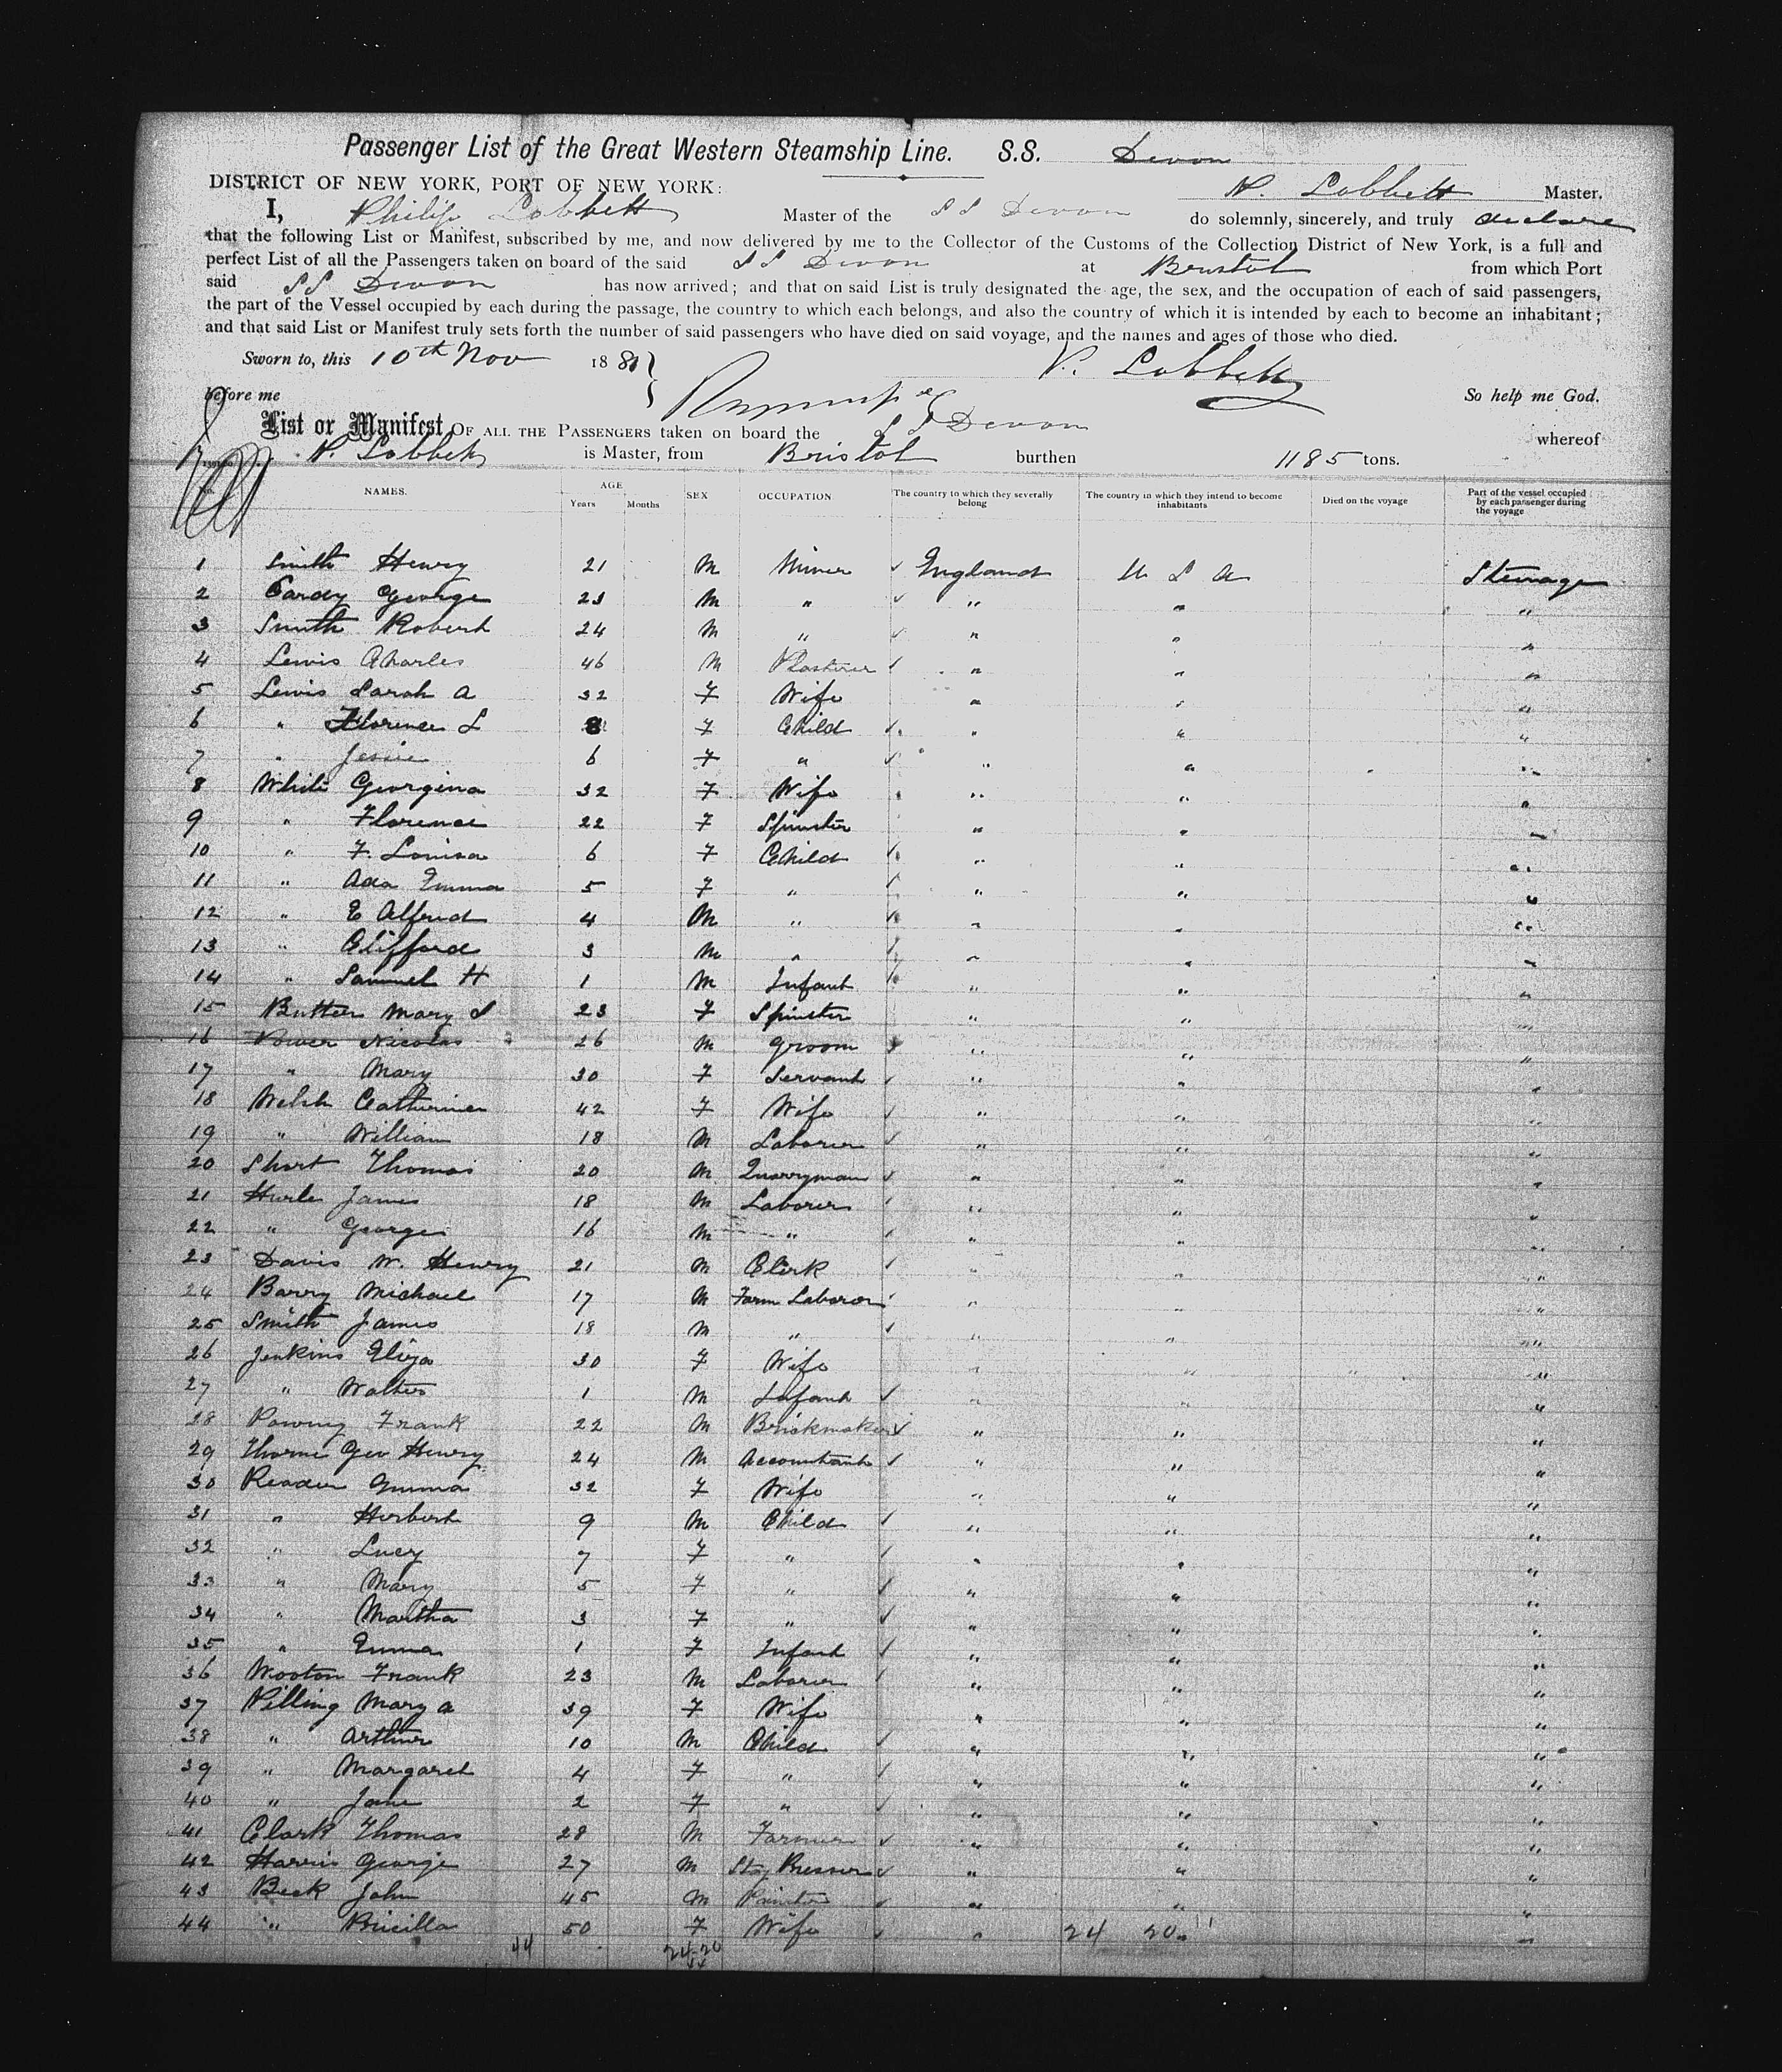 Passenger List of the Great Western Steamship Line. S.S. Devon
DISTRICT OF NEW YORK, PORT OF NEW YORK: P. Lobbett Master.
I, Philip Lobbett Master of the SS Devon do solemnly, sincerely, and truly declare
that the following List or Manifest, subscribed by me, and now delivered by me to the Collector of the Customs of the Collection District of New York, is a full and
perfect List of all the Passengers taken on board of the said SS Devon at Bristol from which Port
said SS Devon has now arrived; and that on said List is truly designated the age, the sex, and the occupation of each of said passengers,
the part of the Vessel occupied by each during the passage, the country to which each belongs, and also the country of which it is intended by each to become an inhabitant;
and that said List or Manifest truly sets forth the number of said passengers who have died on said voyage, and the names and ages of those who died.
Sworn to, this 10th Nov 1881 P. Lobbett
before me So help me God.
List or Manifest OF ALL THE PASSENGERS taken on board the SS Devon whereof
P. Lobbett is Master, from Bristol burthen 1185 tons.
NAMES. AGE Years Months SEX OCCUPATION The country to which they severally belong The country in which they intend to become inhabitants Died on the voyage Part of the vessel occupied by each passenger during the voyage
1 Smith Henry 21 M Miner ✓ England U S A Steerage
2 Cardy George 23 M " ✓ " " "
3 Smith Robert 24 M " ✓ " " "
4 Lewis Charles 46 M Plasterer ✓ " " "
5 Lewis Sarah A 32 F Wife " " "
6 " Florence L 8 F Child ✓ " " "
7 " Jessie 6 F " ✓ " " "
8 White Georgina 32 F Wife " " "
9 " Florence 22 F Spinster " " "
10 " F. Louisa 6 F Child ✓ " " "
11 " Ada Emma 5 F " ✓ " " "
12 " E Alfred 4 M " ✓ " " "
13 " Clifford 3 M " ✓ " " "
14 " Samuel H 1 M Infant ✓ " " "
15 Butters Mary S 23 F Spinster " " "
16 Power Nicolas 26 M Groom ✓ " " "
17 " Mary 30 F Servant ✓ " " "
18 Welsh Catherine 42 F Wife ✓ " " "
19 " William 18 M Laborer ✓ " " "
20 Short Thomas 20 M Quarryman ✓ " " "
21 Hurle James 18 M Laborer ✓ " " "
22 " George 16 M " ✓ " " "
23 Davis W. Henry 21 M Clerk ✓ " " "
24 Barry Michael 17 M Farm Laborer ✓ " " "
25 Smith James 18 M " ✓ " " "
26 Jenkins Eliza 30 F Wife " " " "
27 " Walter 1 M Infant ✓ " " "
28 Frank 22 M Brickmaker ✓ " " "
29 Thorne Geo Henry 24 M Accountant ✓ " " "
30 Reader Emma 32 F Wife " " "
31 " Herbert 9 M Child ✓ " " "
32 " Lucy 7 F " ✓ " " "
33 " Mary 5 F " ✓ " " "
34 " Martha 3 F " ✓ " " "
35 " Emma 1 F Infant ✓ " " "
36 Wooton Frank 23 M Laborer ✓ " " "
37 Pilling Mary A 39 F Wife " " "
38 " Arthur 10 M Child ✓ " " "
39 " Margaret 4 F " ✓ " " "
40 " Jane 2 F " ✓ " " "
41 Clark Thomas 28 M Farmer ✓ " " "
42 Harris George 27 M Stay Presser ✓ " " "
43 Beck John 45 M Painter ✓ " " "
44 " Pricilla 50 F Wife ✓ " 24 20 " "
44 24-20